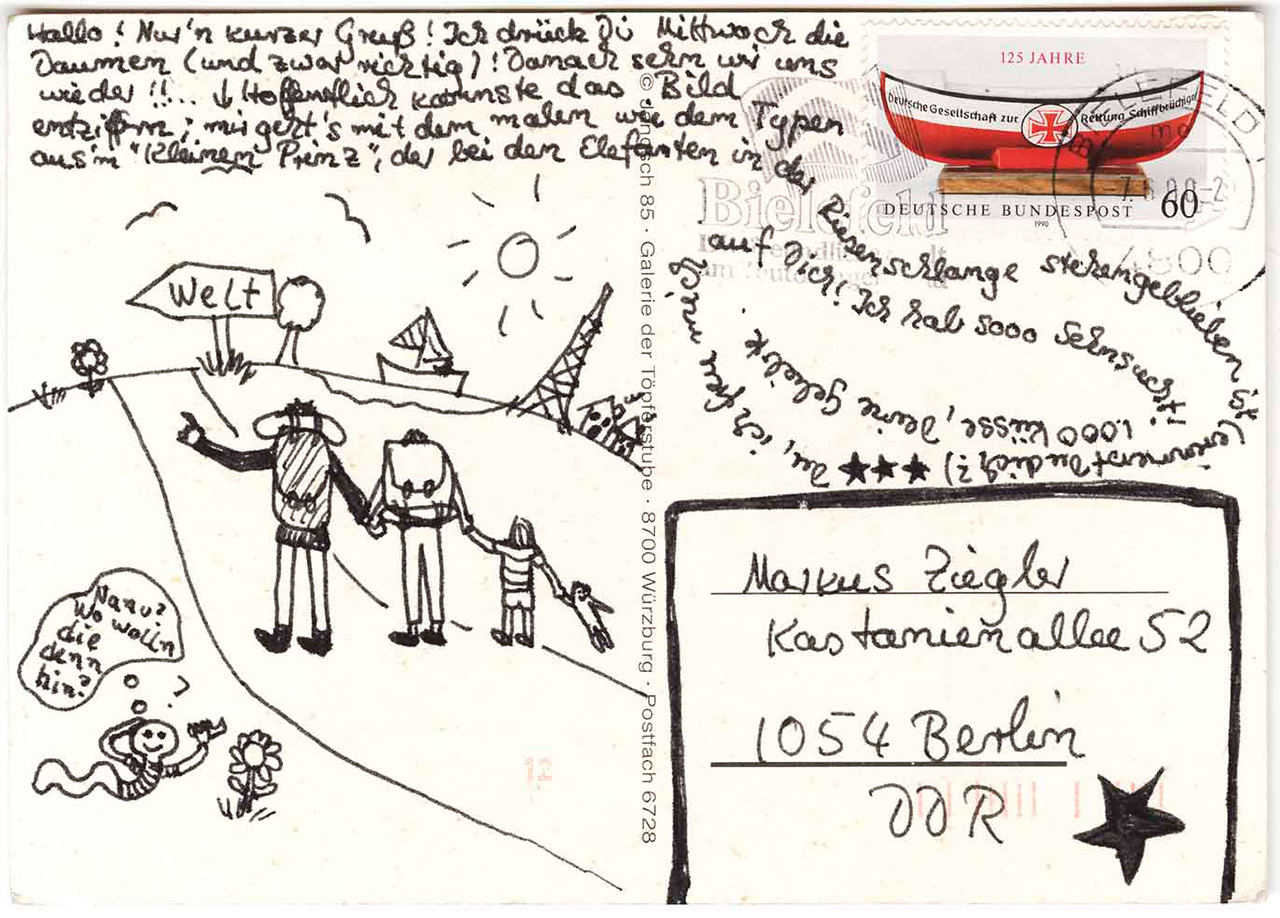 Hallo! Nur'n kurzer Gruß! Ich drück Di Mittwoch die
Daumen (und zwar richtig)! Danach sehn wir uns
wieder!!... ↓ Hoffentlich kannste das Bild
entziffern; mir geht's mit dem malen wie dem Typen
aus'm "Kleinen Prinz", der bei den Elefanten in der Riesenschlange steckengeblieben ist
(erinnerst Du dich?) ★★★ Du, ich freu mich
auf Dich! Ich hab sooo Sehnsucht!
1.000 Küsse, Deine Geliebte.
Welt
Nanu?
Wo wolln
die
denn
hin?
?
85 · Galerie der Töpferstube · 8700 Würzburg · Postfach 6728
12
125 JAHRE
Deutsche Gesellschaft zur Rettung Schiffbrüchiger
DEUTSCHE BUNDESPOST 60
1990
Bielefeld
BIELEFELD
4800
Markus Ziegler
Kastanienallee 52
1054 Berlin
DDR